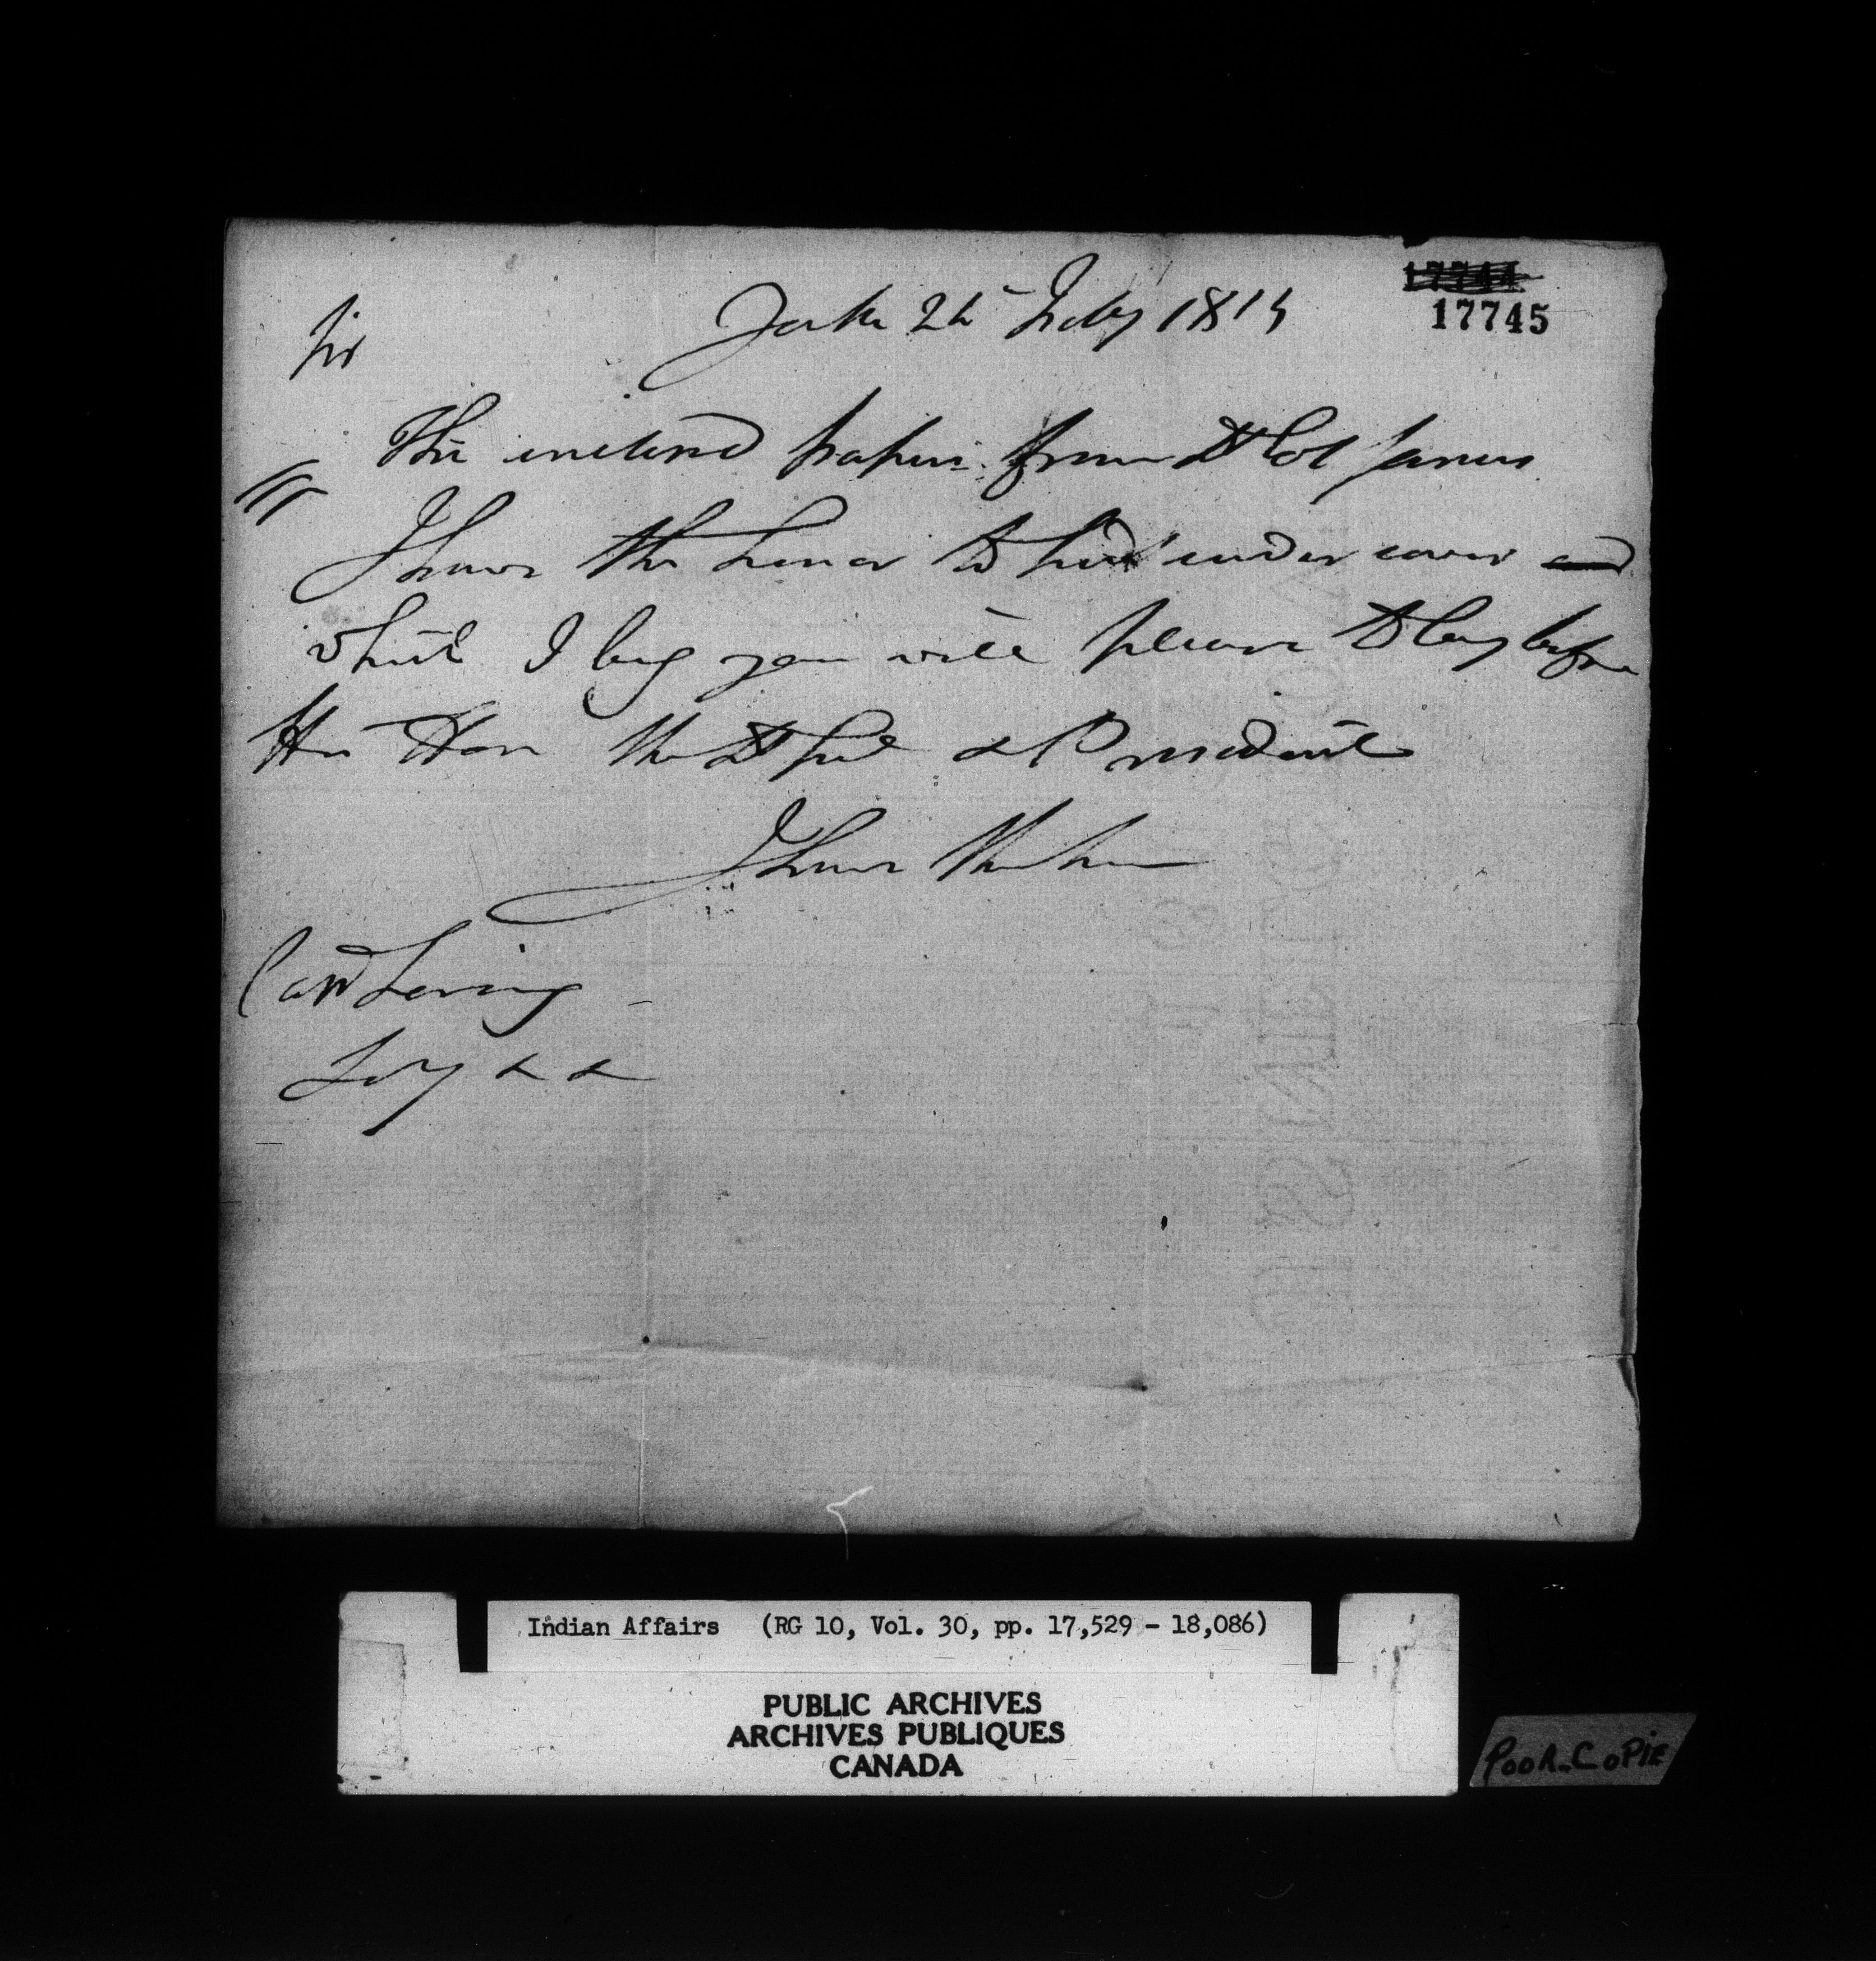 17744
17745
York 26 Feby 1815
Sir
The inclosed papers from Lt Col James
I have the honor to send under cover and
which I beg you will please to lay before
His Hon the Lt Genl & President
I have the hon
Capt Loring
Secy & &
Indian Affairs (RG 10, Vol. 30, pp. 17,529 - 18,086)
PUBLIC ARCHIVES
ARCHIVES PUBLIQUES
CANADA
POOR_COPIE